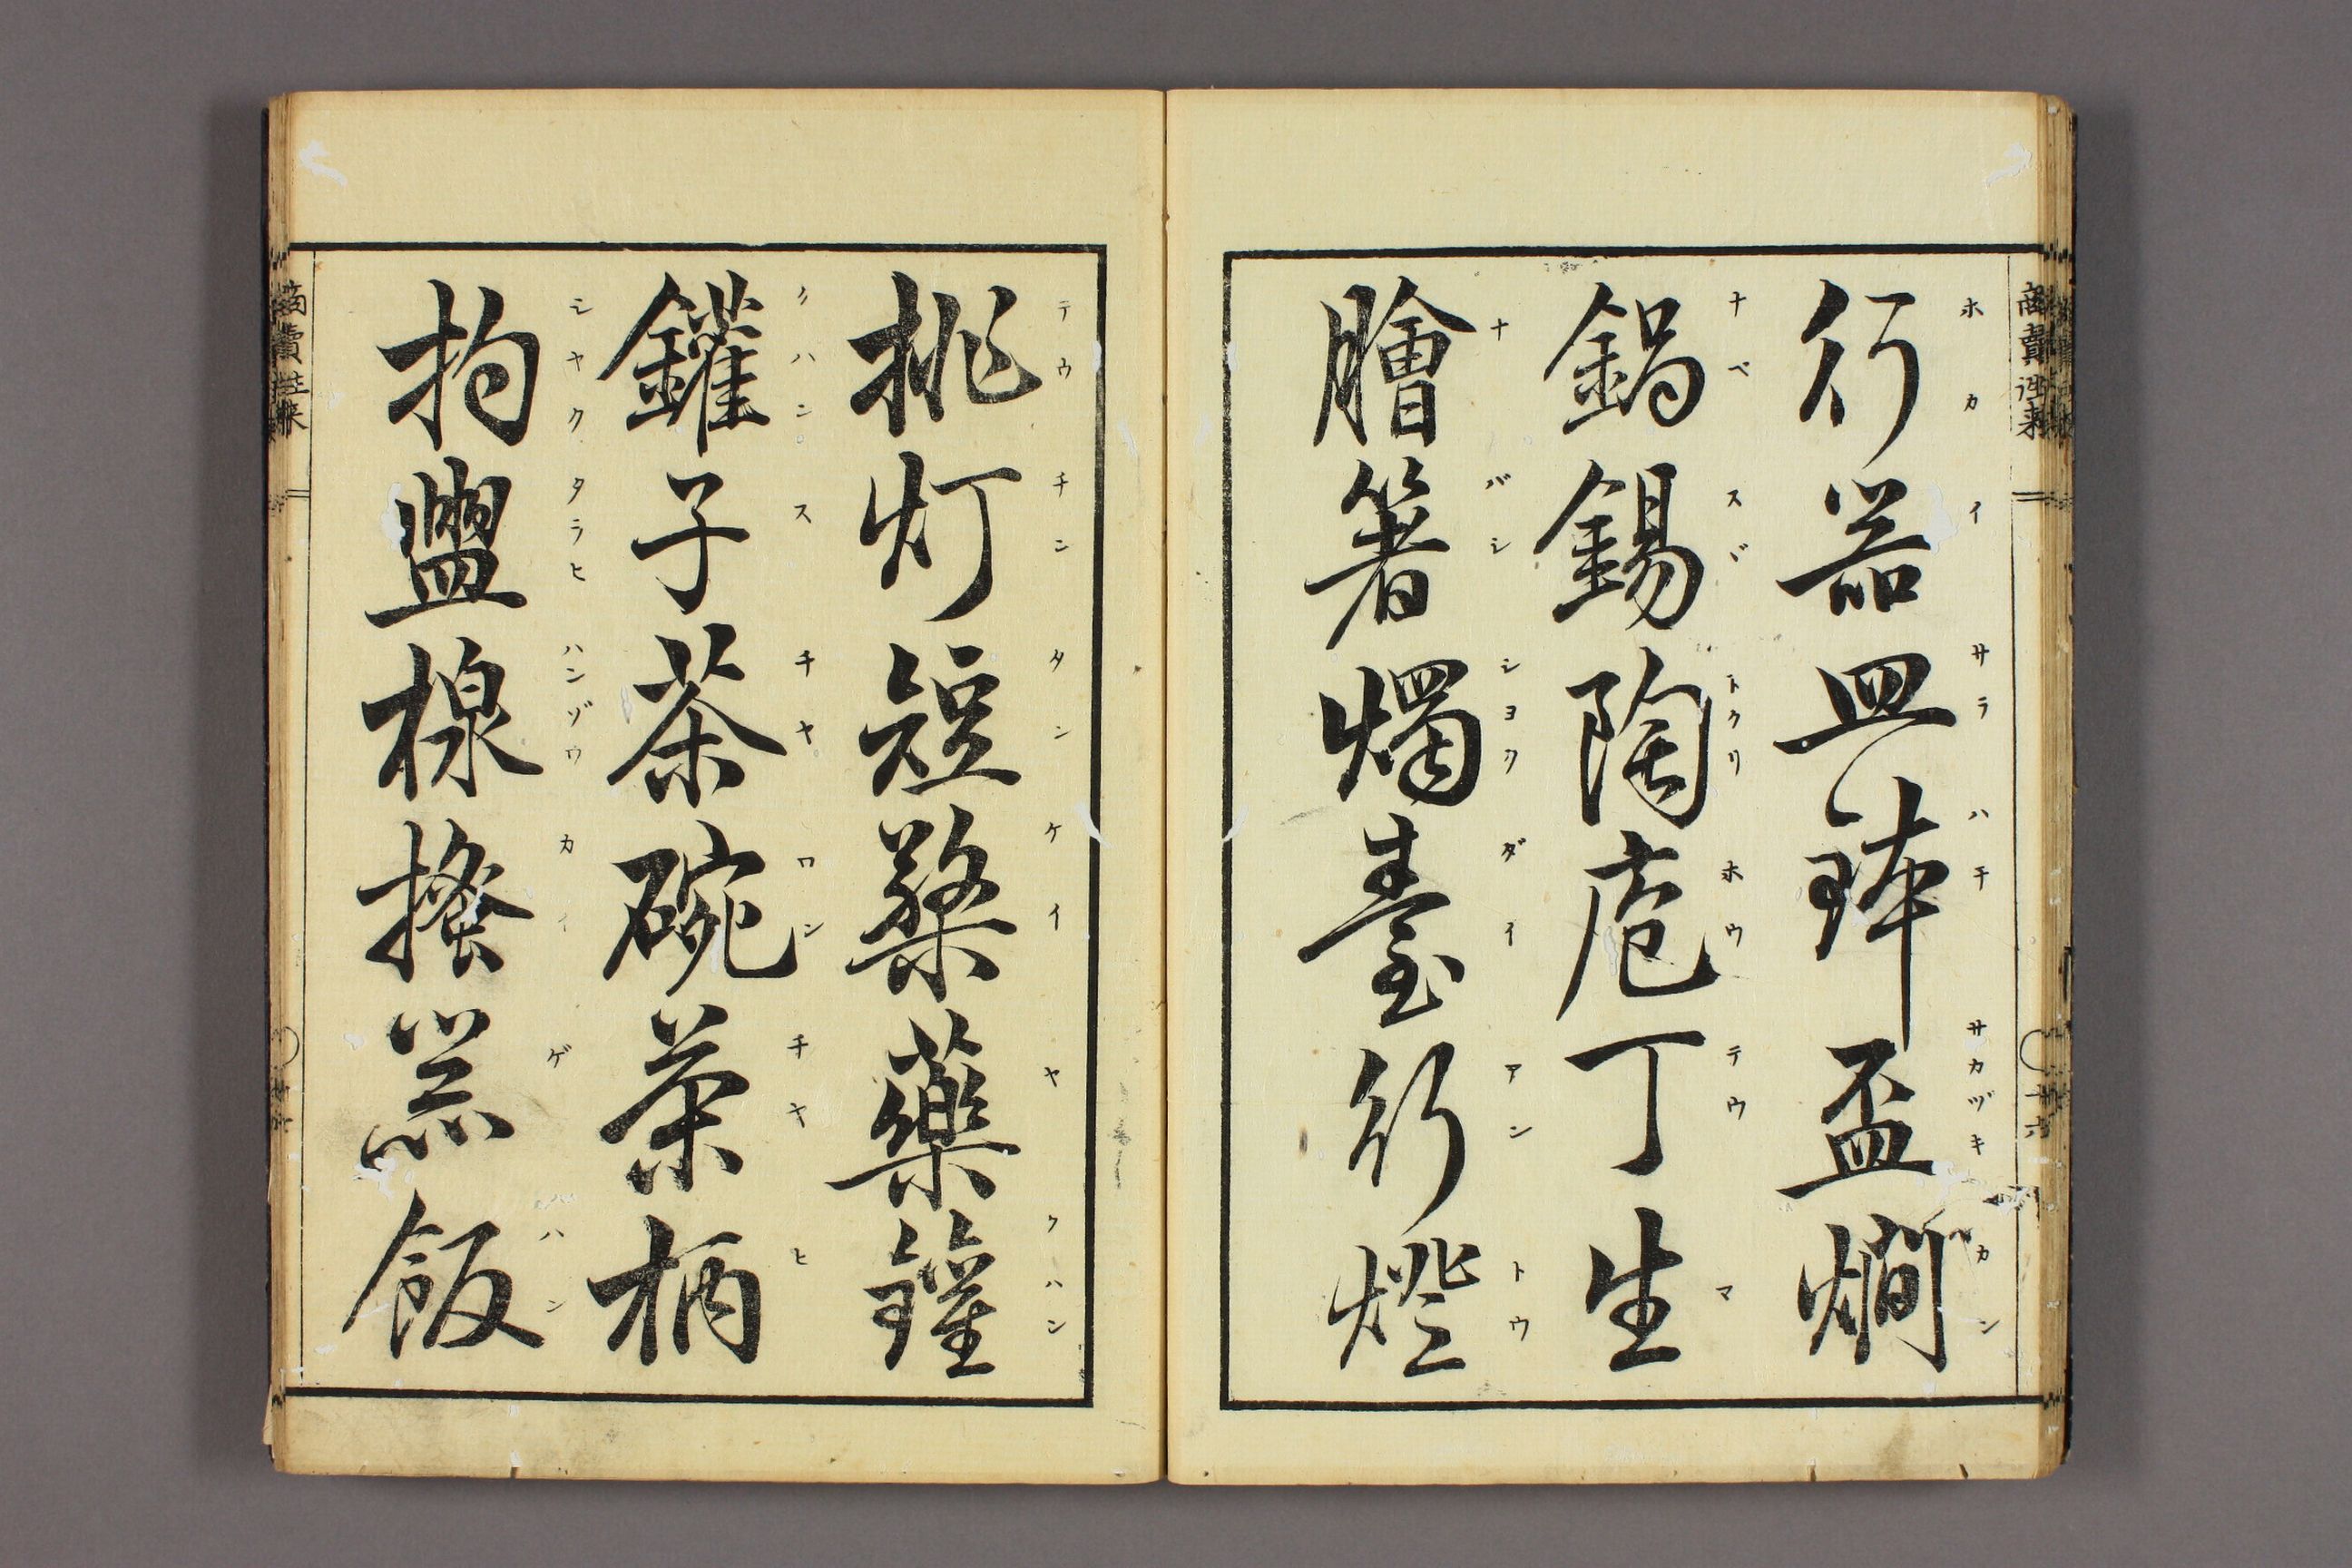 商賣徃来
行器皿鉢盃燗
ホカイサラハチサカヅキカン
鍋錫陶庖丁生
ナベスヾトクリホウテウマ
膾箸燭臺行燈
ナバシシヨクダイアントウ
挑灯短檠藥鑵
テウチンタンケイヤクハン
鑵子茶碗茶柄
クハンスチヤワンチヤヒ
杓盥楾掻笥飯
シヤクタラヒハンゾウカイゲハン
商賣徃来